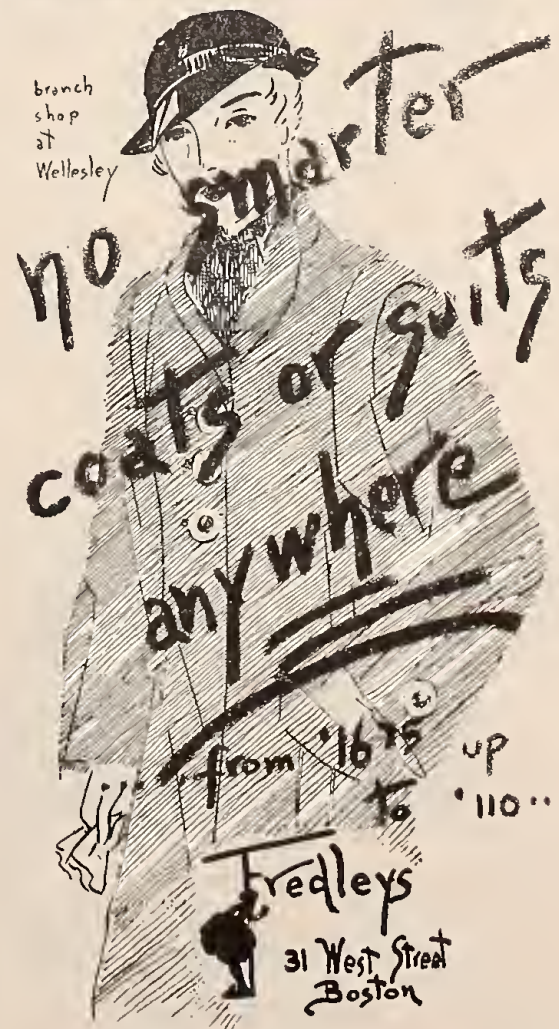 branch
shop
at
Wellesley
no smarter
coats or suits
anywhere
..from $16 75 up
to $110..
Fredleys
31 West Street
Boston